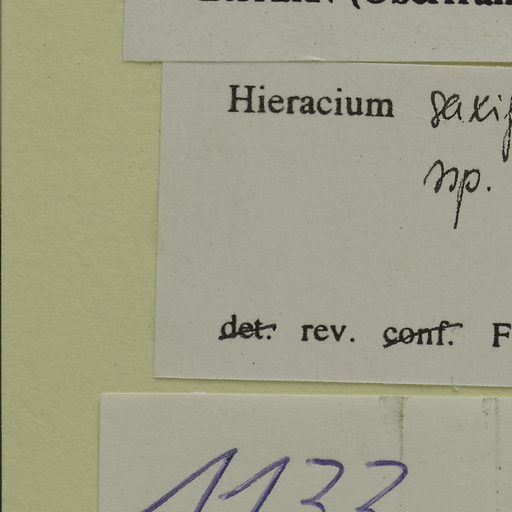 Hieracium saxif
ssp.
det. rev. conf. F
1133